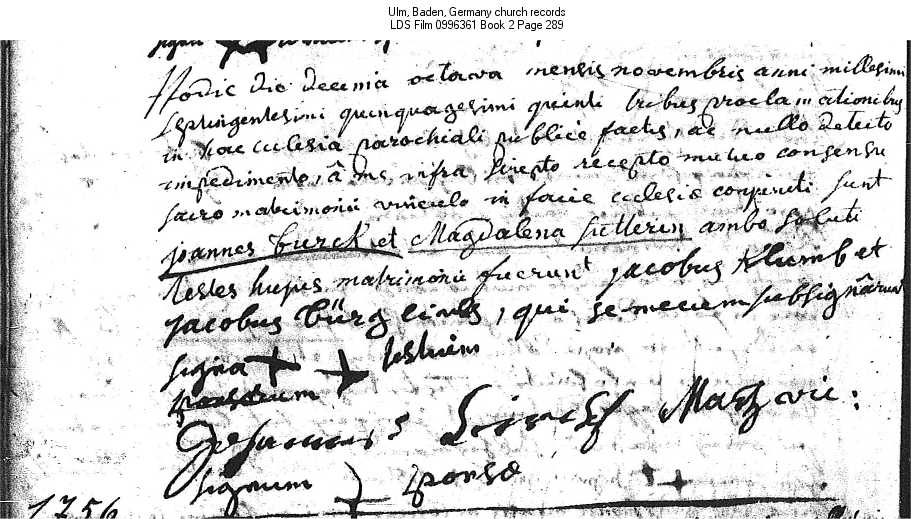 Ulm, Baden, Germany church records
LDS Film 0996361 Book 2 Page 289
Hodie die decima octava mensis novembris anni millesimi
septingentesimi quinquagesimi quinti tribus proclamationibus
in hac eclesia parochiali publice factis, ac nullo detecto
impedimento, â me infra scripto recepto mutuo consensu
sacro matrimonii vinculo in facie eclesiæ conjuncti sunt
joannes burck et Magdalena sutterin ambo soluti
testes hujus matrimonii fuerunt jacobus Klumb et
jacobus bürg civis, qui se mecum subsignârunt
signa + + testium
Johannis
signum + sponsæ
1756